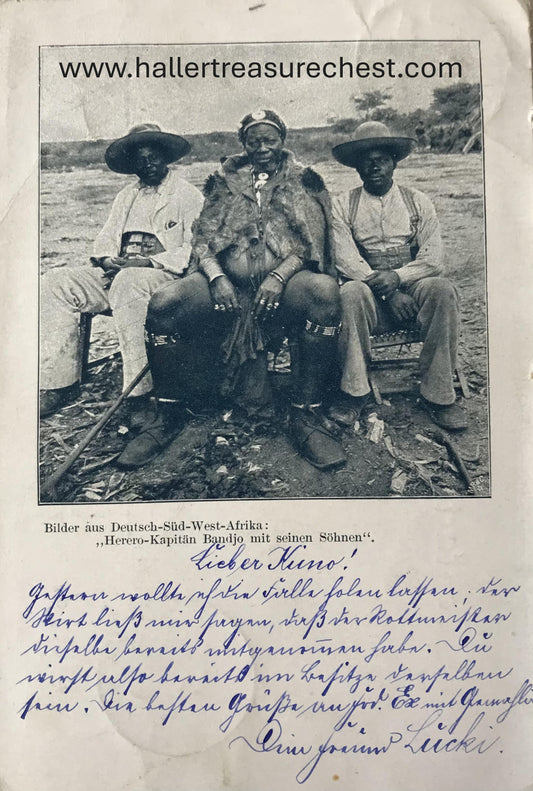 www.hallertreasurechest.com
Bilder aus Deutsch-Süd-West-Afrika:
„Herero-Kapitän Bandjo mit seinen Söhnen“.
Lieber Kuno!
Gestern wollte ich die Falle holen lassen, der
Wirt ließ mir sagen, daß der Rottmeister
dieselbe bereits mitgenommen habe. Du
wirst also bereits im Besitze derselben
sein. Die besten Grüße an Ex mit Gemahlin
Dein Freund Lucki.